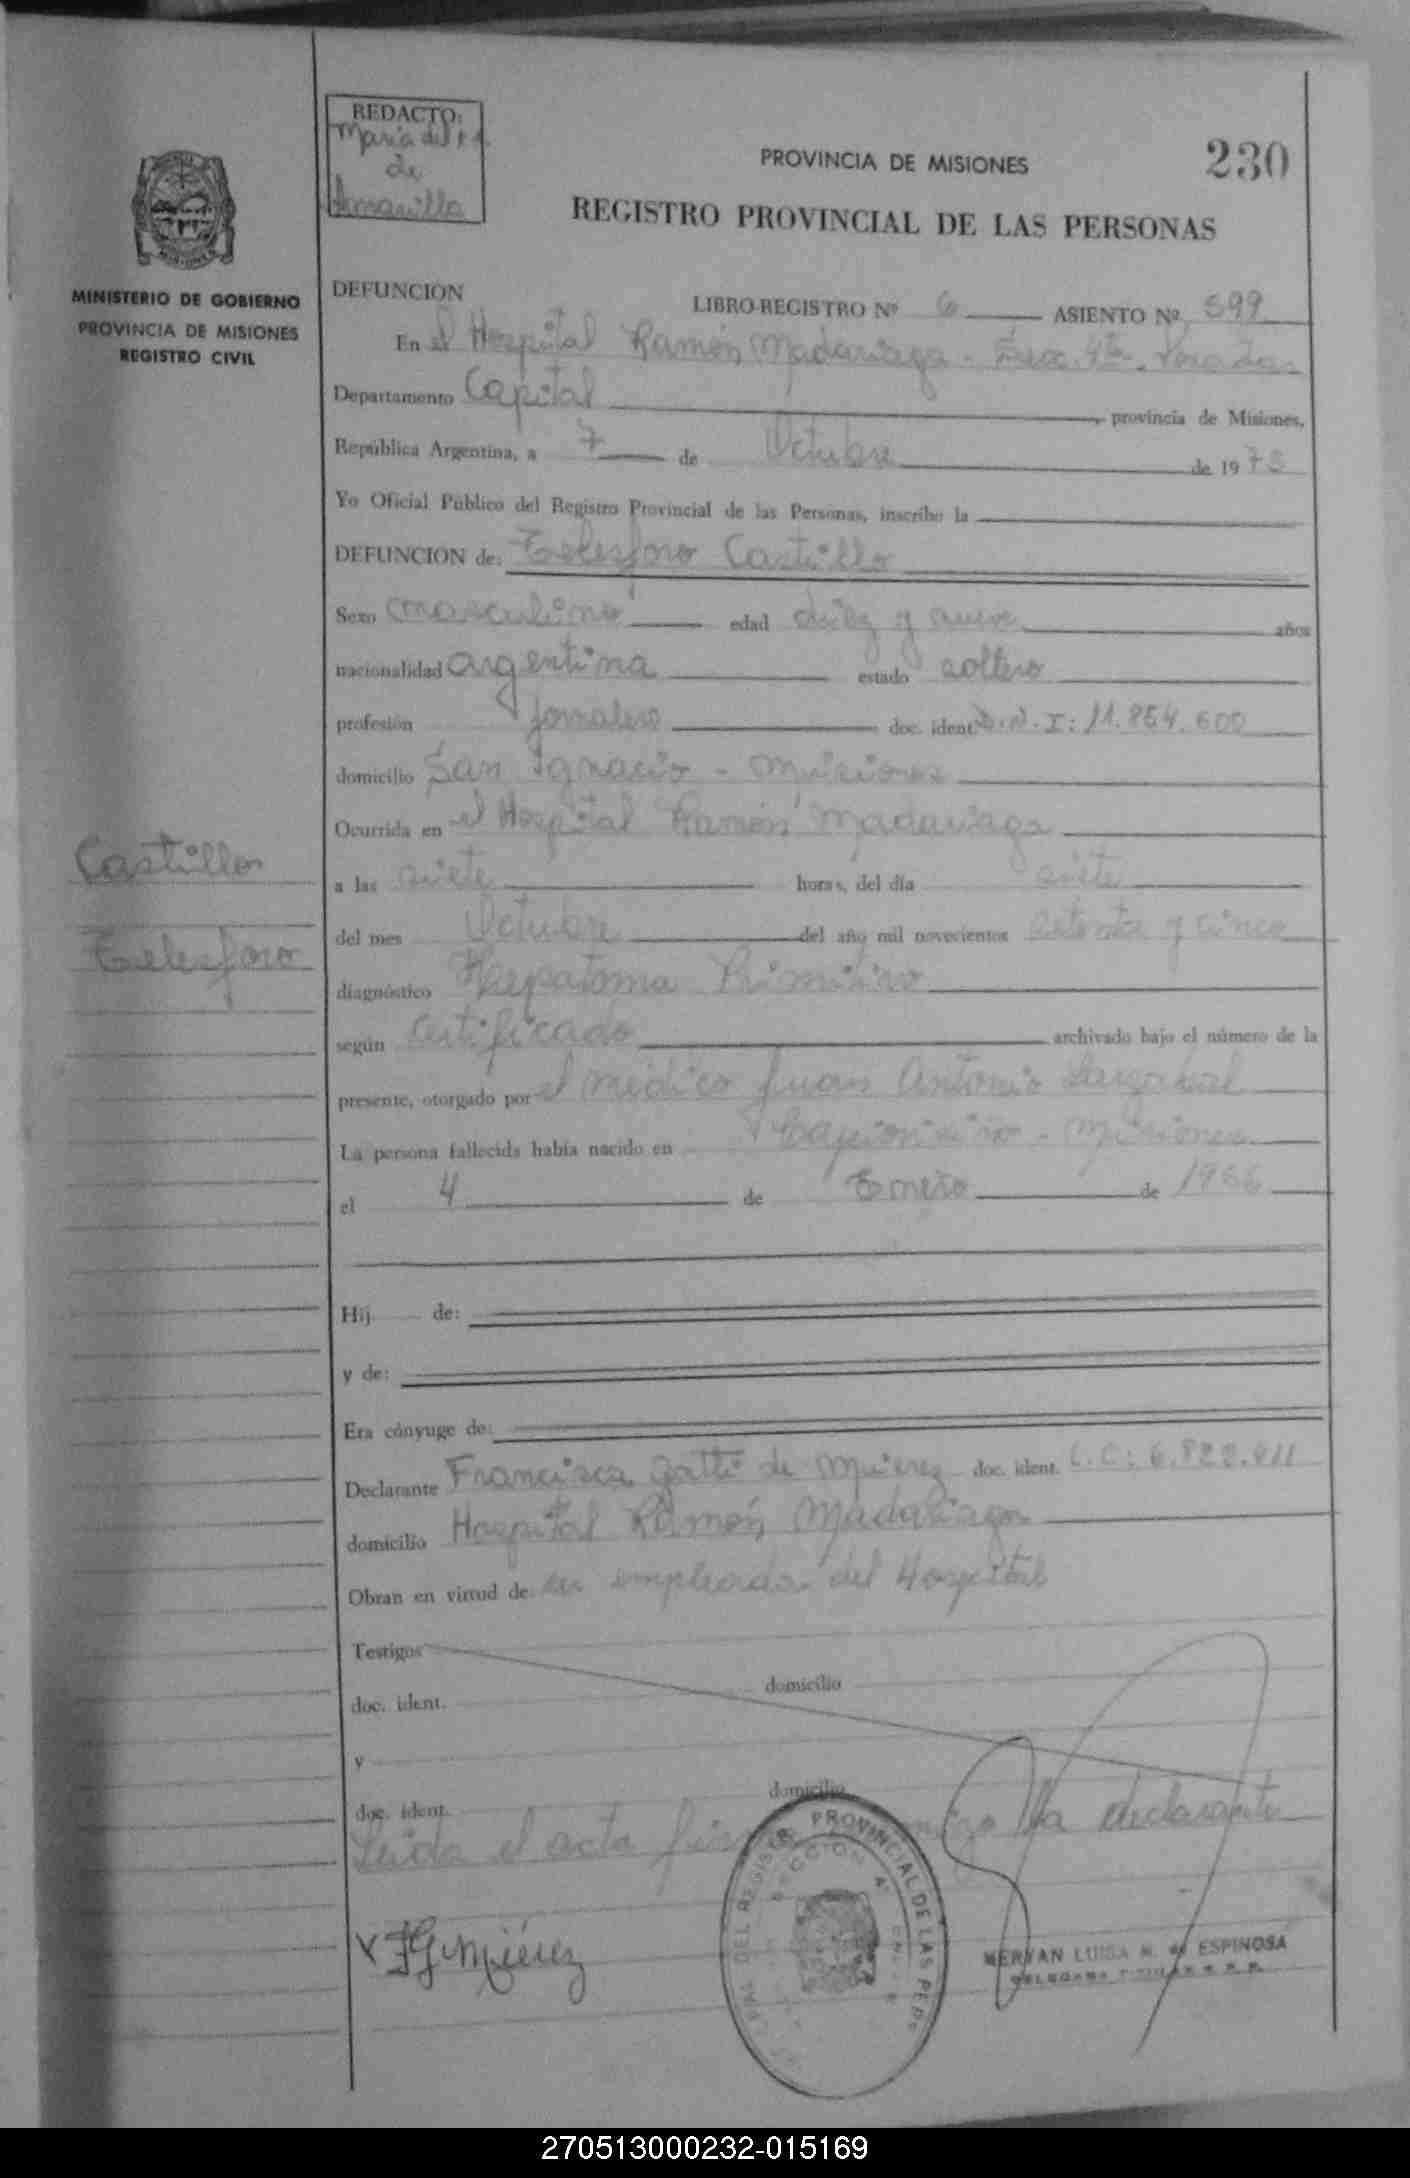 REDACTO:
Maria del
de
Amarilla
PROVINCIA DE MISIONES
230
REGISTRO PROVINCIAL DE LAS PERSONAS
MINISTERIO DE GOBIERNO
PROVINCIA DE MISIONES
REGISTRO CIVIL
DEFUNCION
LIBRO-REGISTRO Nº 6 ASIENTO Nº 599
En el Hospital Ramón Madariaga - Secc. 4ta. Posadas
Departamento Capital, provincia de Misiones,
República Argentina, a 7 de Octubre de 1975
Yo Oficial Público del Registro Provincial de las Personas, inscribo la
DEFUNCION de: Telesforo Castillo
Sexo masculino edad diez y nueve años
nacionalidad argentina estado soltero
profesión jornalero doc. ident. D.N.I: 11.854.600
domicilio San Ignacio - Misiones
Ocurrida en el Hospital Ramón Madariaga
Castillo
a las siete horas, del día siete
del mes Octubre del año mil novecientos setenta y cinco
Telesforo
diagnóstico Hepatoma Primitivo
según certificado archivado bajo el número de la
presente, otorgado por el médico Juan Antonio
La persona fallecida había nacido en - Misiones
el 4 de Enero de 1956
Hij de:
y de:
Era cónyuge de:
Declarante Francisca Gatti de Mierez doc. ident. L.C: 6.823.411
domicilio Hospital Ramón Madariaga
Obran en virtud de ser empleada del Hospital
Testigos
domicilio
doc. ident.
y
domicilio
doc. ident.
Leida el acta conmigo la declarante
DEL REGISTR PROVINCIAL DE LAS PERS
SECCION 4ª
FG Miérez
MERYAN LUISA M. de ESPINOSA
270513000232-015169